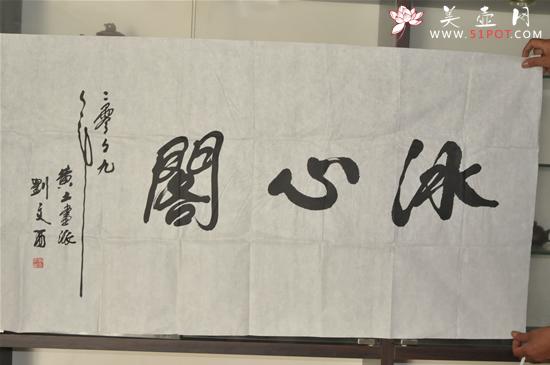 美壶网
WWW.51POT.COM
冰心閣
二零々九
黄土畫派
劉文西